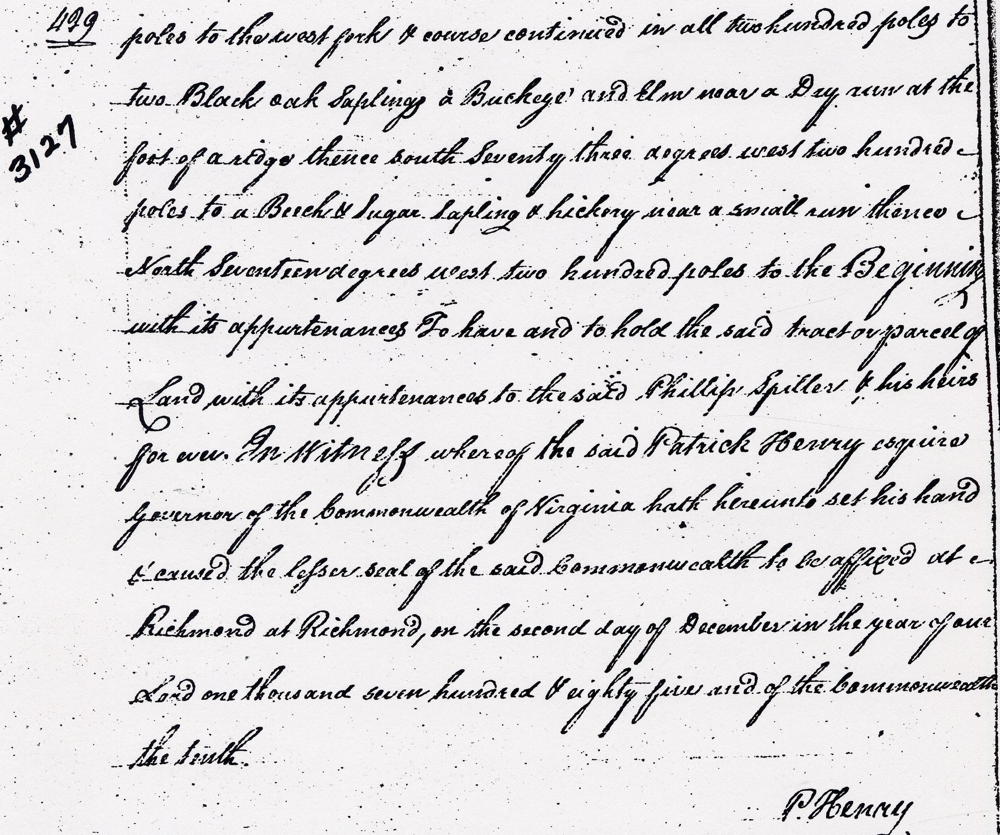 499
# 3127
poles to the west fork & course continued in all two hundred poles to
two Black oak Saplings a Buckeye and Elm near a Dry run at the
foot of a ridge thence south Seventy three degrees west two hundred
poles to a Beech & Sugar Sapling & hickory near a small run thence
North Seventeen degrees west two hundred poles to the Beginning
with its appurtenances To have and to hold the said tract or parcel of
Land with its appurtenances to the said Phillip Spiller & his heirs
for ever. In Witness whereof the said Patrick Henry esquire
Governor of the Commonwealth of Virginia hath hereunto set his hand
& caused the lesser seal of the said Commonwealth to be affixed at
Richmond at Richmond, on the second day of December in the year of our
Lord one thousand seven hundred & eighty five and of the Commonwealth
the tenth.
P. Henry